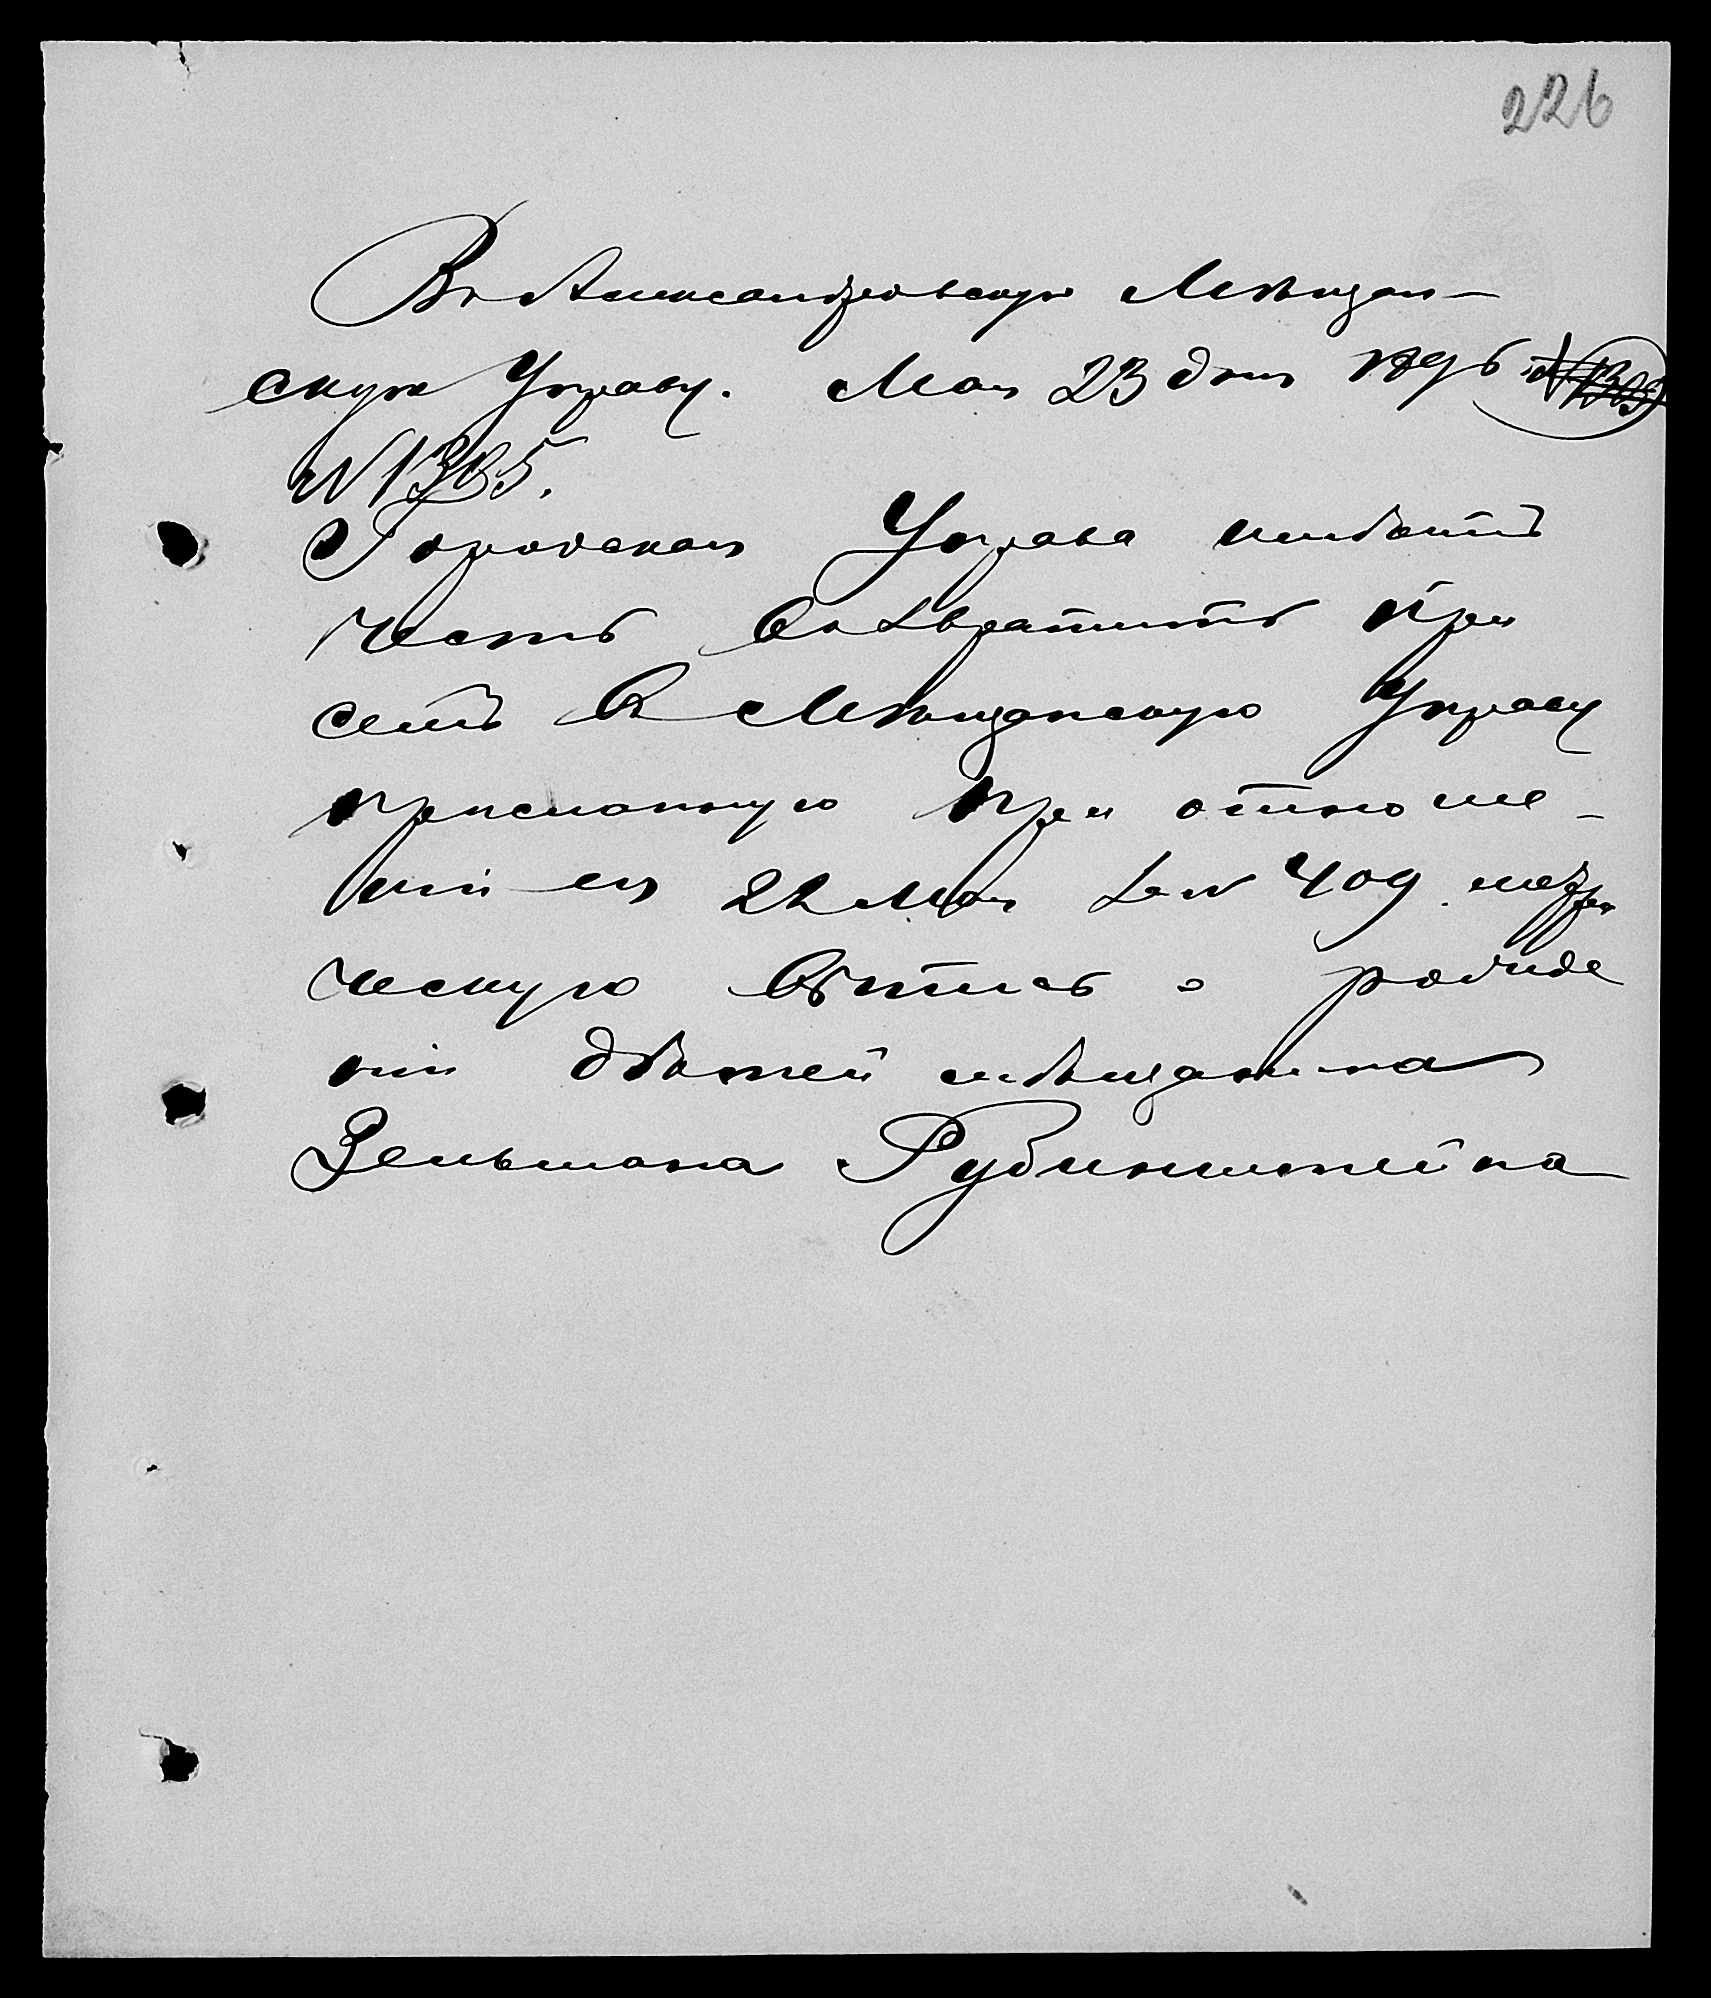 226
Въ Александровскую Мѣщан-
скую Управу. Мая 23 дня 1896 N1305
N 1305.
Городская Управа имѣетъ
честь возвратить при
семъ въ Мѣщанскую Управу
присланную при отноше-
ніи ея 22 Мая за N 409 метри
ческую выпись о рожде
ніи дѣтей мѣщанина
Зельмана Рубинштейна